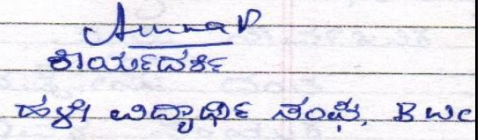 ಕಾರ್ಯದರ್ಶಿ
ಹಳೇ ವಿದ್ಯಾರ್ಥಿ ಸಂಘ, B